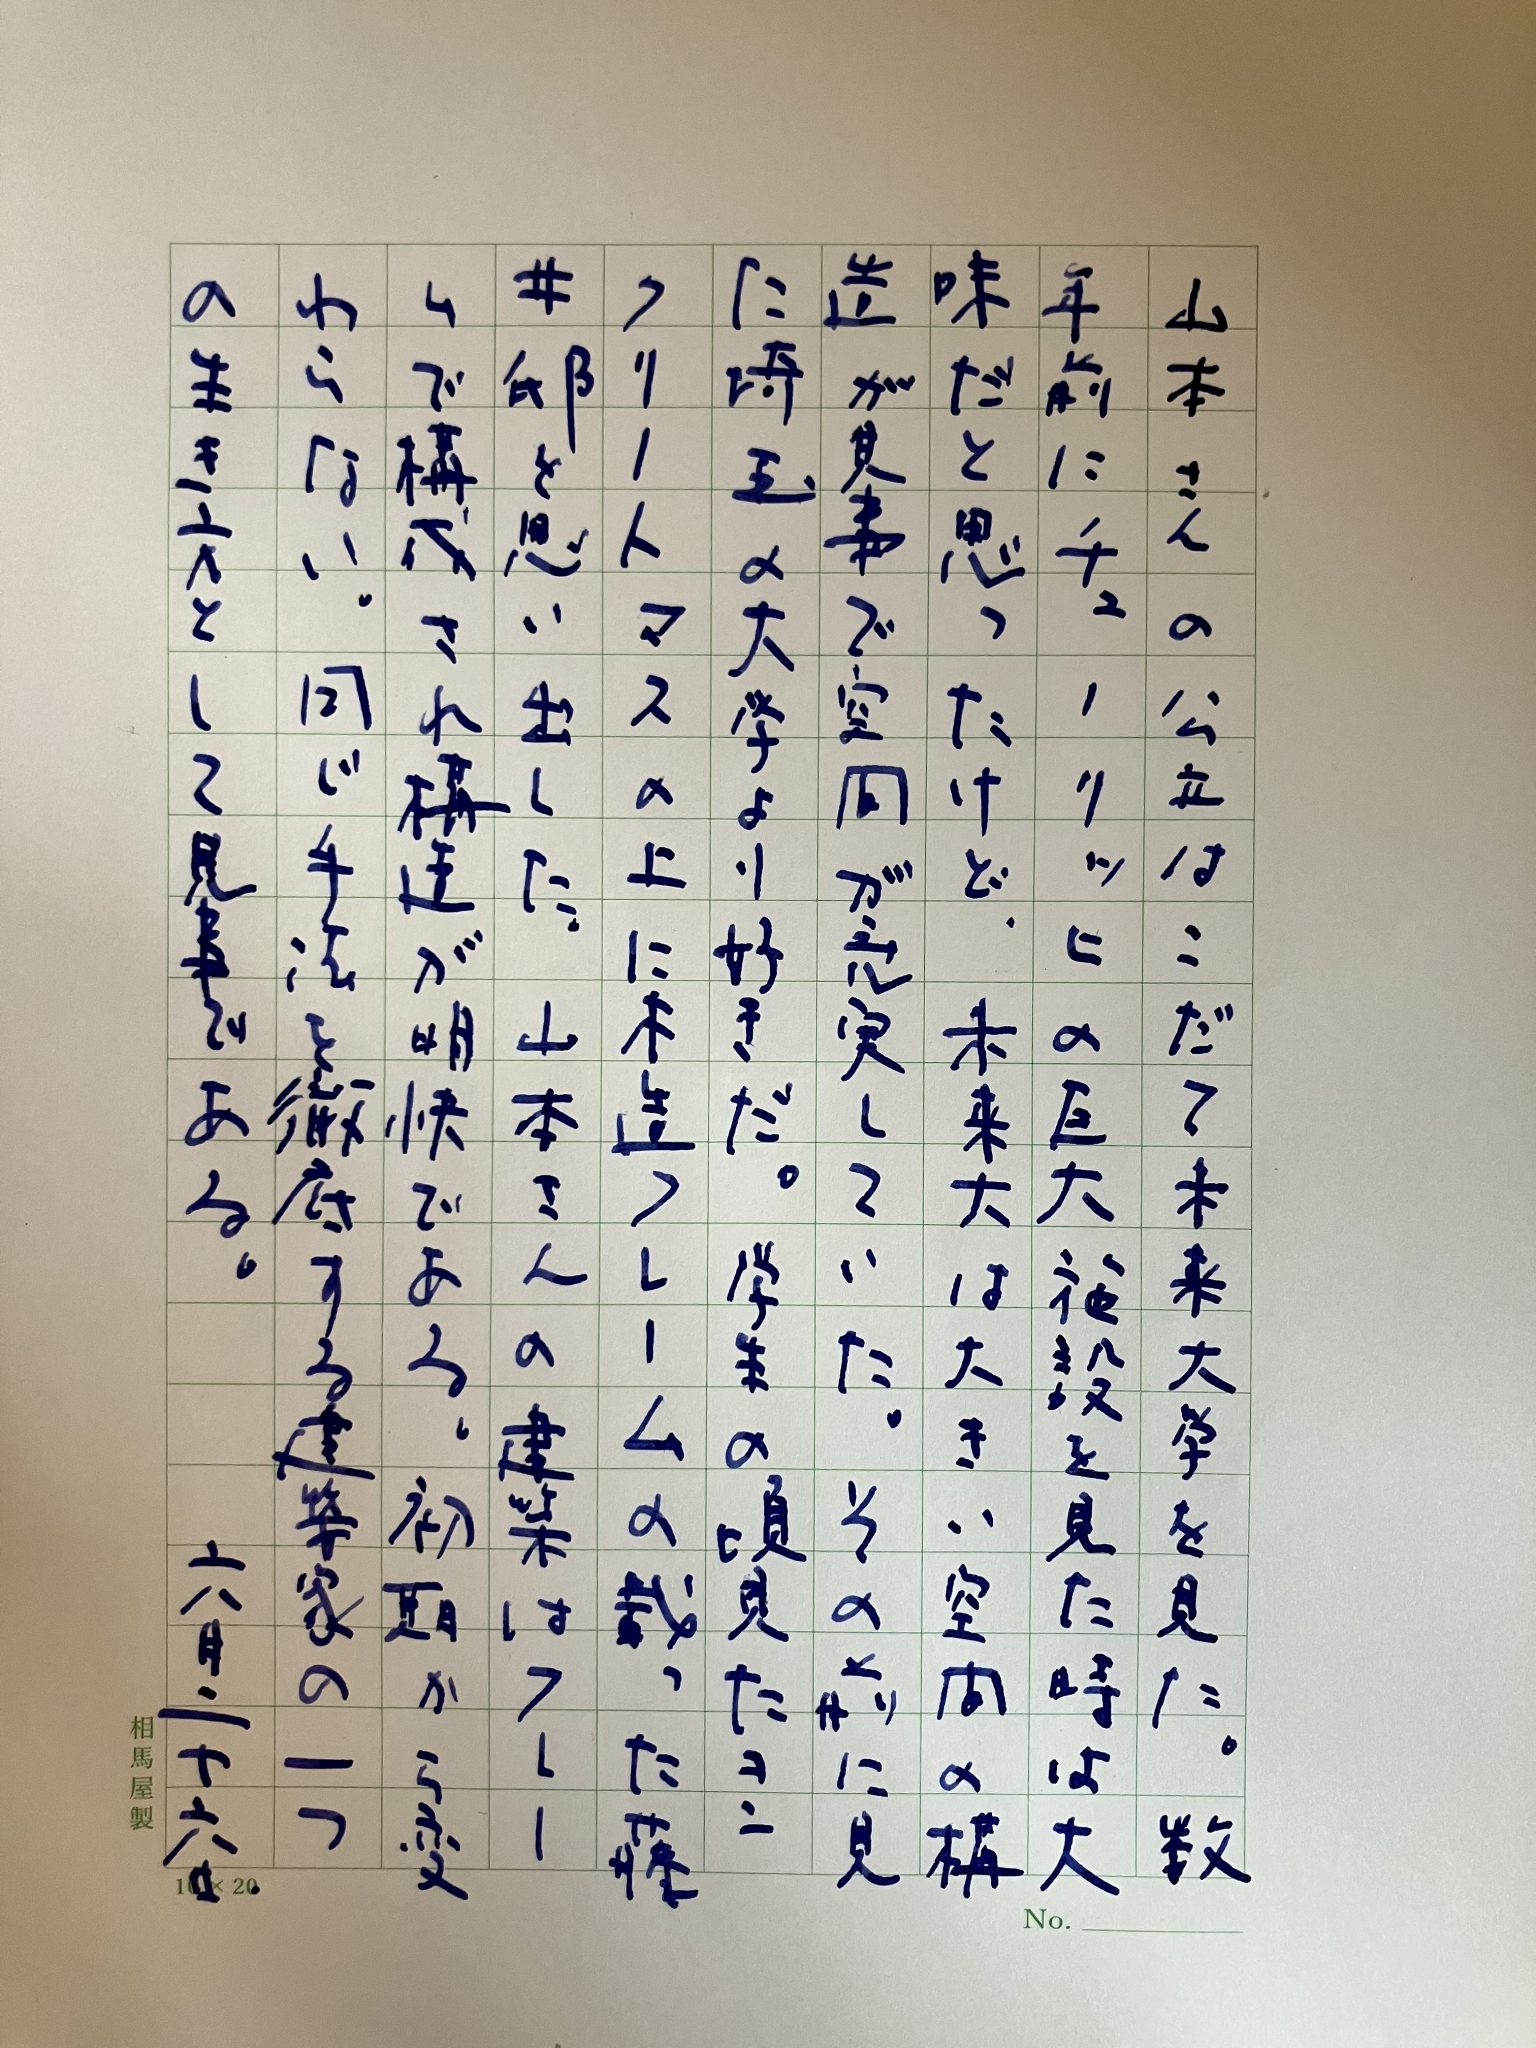 山本さんの公立はこだて未来大学を見た。数
年前にチューリッヒの巨大施設を見た時は大
味だと思ったけど、未来大は大きい空間の構
造が見事で空間が充実していた。その前に見
た埼玉の大学より好きだ。学生の頃見たコン
クリートマスの上に木造フレームの載った藤
井邸を思い出した。山本さんの建築はフレー
ムで構成され構造が明快である。初期から変
わらない。同じ手法を徹底する建築家の一つ
の生き方として見事である。六月二十六日
相馬屋製
10×20
No.